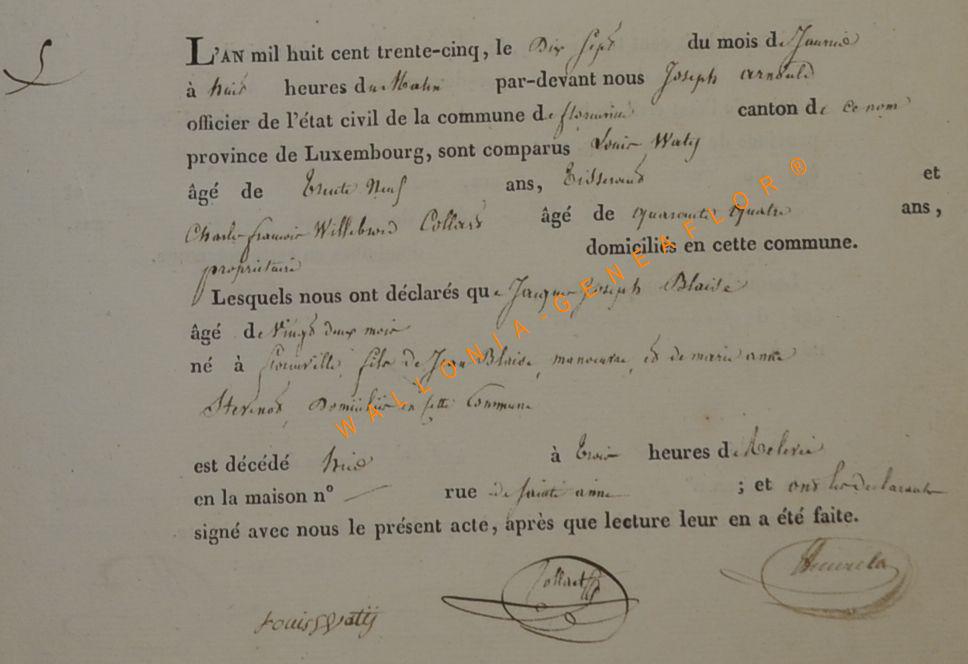 5
L'AN mil huit cent trente-cinq, le Dix Sept du mois de Janvier
à huit heures du Matin par-devant nous Joseph arnould
officier de l'état civil de la commune de florenville canton de ce nom
province de Luxembourg, sont comparus Louis Watÿ
âgé de trente Neuf ans, Tisserand et
Charles françois Willebrord Collard âgé de quarante quatre ans,
propriétaire domiciliés en cette commune.
Lesquels nous ont déclarés que Jacques Joseph Blaise
âgé de Vingt deux mois
né à florenville, fils de Jean Blaise, manoeuvre, et de marie anne
Domicilié en cette Commune
est décédé hier à trois heures de Relevée
en la maison nº — rue de sainte anne ; et ont les déclarants
signé avec nous le présent acte, après que lecture leur en a été faite.
Louis Watÿ Collard
WALLONIA-GENEAFLOR®